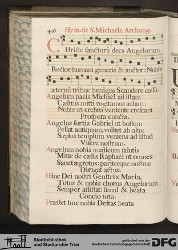 Hym. de S. Michaële Archang.
Christe sanctorū decus Angelorum
Rector humani generis & auctor: Nobis
æternū tribue benignus Scandere cælū.
Angelus pacis Michaël ad istam
Cælitus mitti rogitamus aulam:
Nobis ut crebrò veniente crescant
Prospera cuncta.
Angelus fortis Gabriel ut hostem
Pellat antiquum, volitet ab alto
Sæpius templum veniens ad istud
Visere nostrum.
Angelum nobis medicum salutis
Mitte de cælis Raphaël ut omnes
Sanet ægrotos: pariterque nostros
Dirigat actus.
Hinc Dei nostri Genitrix Maria,
Totus & nobis chorus Angelorum
Semper assistat simul & beata
Concio tota.
Præstet hoc nobis Deitas beata
Stadtbibliothek
und Stadtarchiv Trier
gefördert durch
DFG
Deutsche
Forschungsgemeinschaft